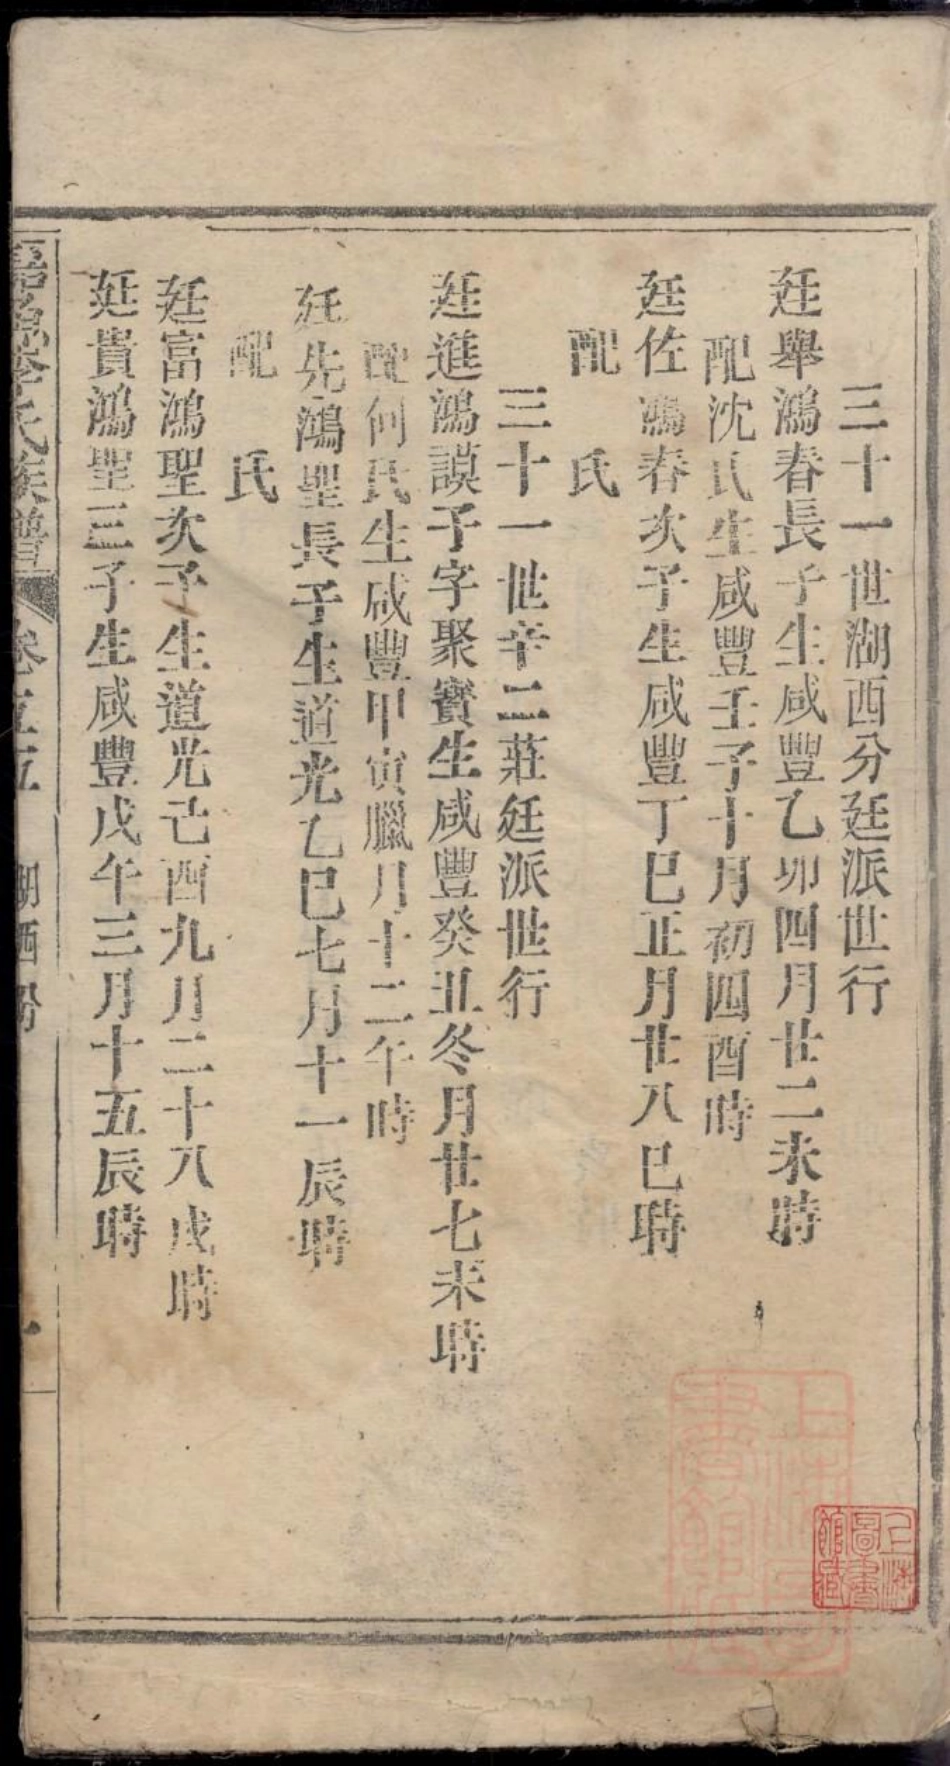 三十一世湖西分廷派世行
廷舉鴻春長子生咸豐乙卯四月廿二未時
配沈氏生咸豐壬子十月初四酉時
廷佐鴻春次子生咸豐丁巳正月廿八巳時
配 氏
三十一世辛二莊廷派世行
廷進鴻謨子字聚寳生咸豐癸丑冬月廿七未時
配何氏生咸豐甲寅臘月十二午時
廷先鴻聖長子生道光乙巳七月十一辰時
配 氏
廷富鴻聖次子生道光己酉九月二十八戌時
廷貴鴻聖三子生咸豐戊午三月十五辰時
氏族譜 卷五 湖西分 一
上海圖書館藏